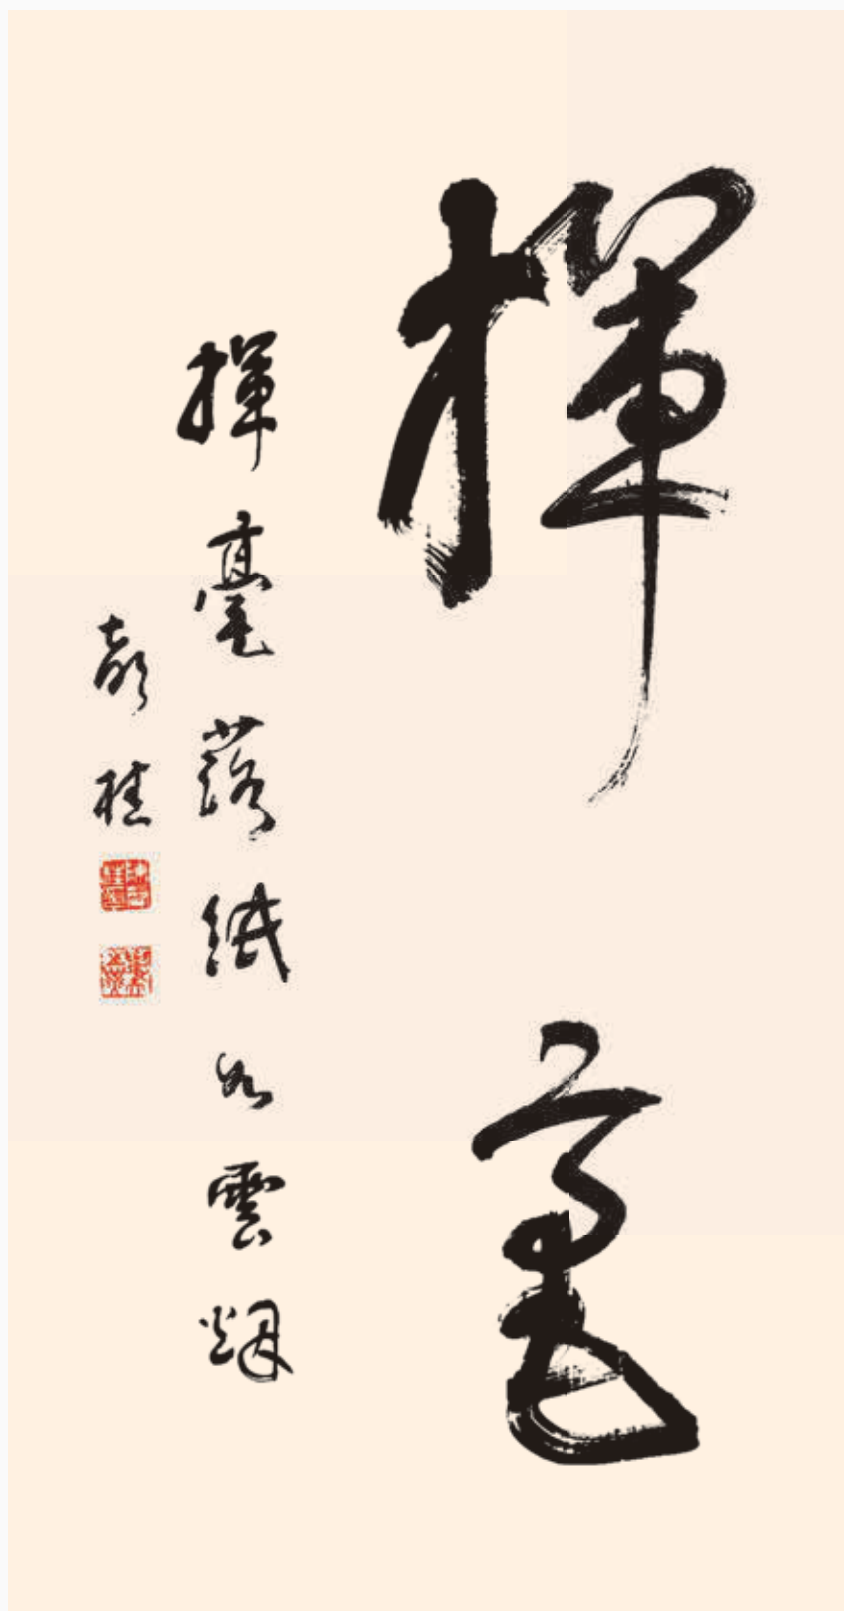 揮毫
揮毫落紙如雲煙